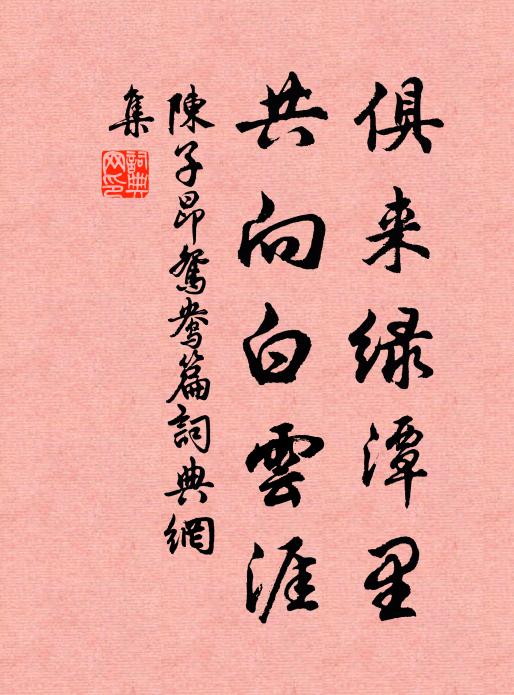 俱来绿潭里
共向白雲涯
陳子昂鴛鴦篇詞典網
集
詞典
网印